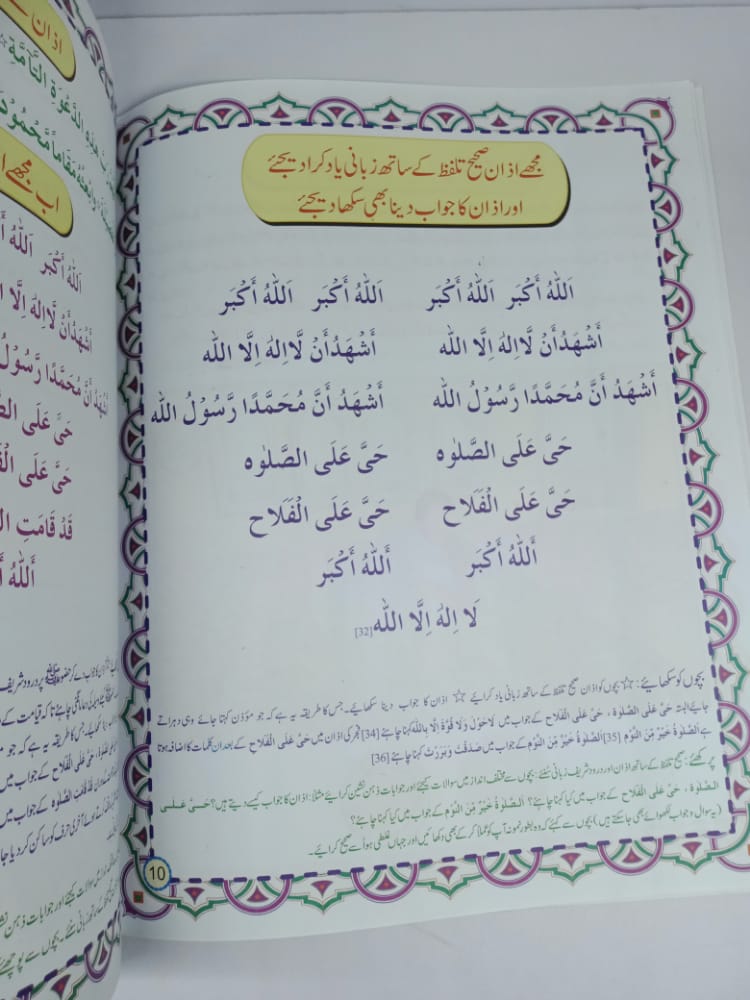 مجھے اذان صحیح تلفظ کے ساتھ زبانی یاد کرا دیجئے
اور اذان کا جواب دینا بھی سکھا دیجئے
اَللهُ أَكْبَر اَللهُ أَكْبَر اَللهُ أَكْبَر اَللهُ أَكْبَر
أَشْهَدُأَنْ لَّااِلٰهَ اِلَّا الله أَشْهَدُأَنْ لَّااِلٰهَ اِلَّا الله
أَشْهَدُ أَنَّ مُحَمَّدًا رَّسُوْلُ الله أَشْهَدُ أَنَّ مُحَمَّدًا رَّسُوْلُ الله
حَیَّ عَلَی الصَّلٰوه حَیَّ عَلَی الصَّلٰوه
حَیَّ عَلَی الْفَلَاح حَیَّ عَلَی الْفَلَاح
أَللهُ أَكْبَر أَللهُ أَكْبَر
لَا اِلٰهَ اِلَّا الله[32]
بچوں کو سکھائیے: ☆ بچوں کو اذان صحیح تلفظ کے ساتھ زبانی یاد کرائیے ☆ اذان کا جواب دینا سکھائیے۔ جس کا طریقہ یہ ہے کہ جو مؤذن کہتا جائے وہی دہراتے
جائیے البتہ حَیَّ عَلَی الصَّلٰوة، حَیَّ عَلَی الْفَلَاح کے جواب میں لَاحَوْلَ وَلَا قُوَّةَ اِلَّا بِاللهِ کہنا چاہئے[34] فجر کی اذان میں حَیَّ عَلَی الْفَلَاح کے بعد ان کلمات کا اضافہ ہوتا
ہے اَلصَّلٰوةُ خَیْرٌ مِّنَ النَّوْم [35] اَلصَّلٰوةُ خَیْرٌ مِّنَ النَّوْم کے جواب میں صَدَقْتَ وَبَرَرْتَ کہنا چاہئے[36]
پرکھئے: صحیح تلفظ کے ساتھ اذان اور درود شریف زبانی سنئے: بچوں سے مختلف انداز میں سوالات کیجئے اور جوابات ذہن نشین کرائیے مثلا: اذان کا جواب کیسے دیتے ہیں؟ حَیَّ عَلَی
الصَّلٰوة، حَیَّ عَلَی الْفَلَاح کے جواب میں کیا کہنا چاہئے؟ اَلصَّلٰوةُ خَیْرٌ مِّنَ النَّوْم کے جواب میں کیا کہنا چاہئے؟
(یہ سوال و جواب لکھوائے بھی جا سکتے ہیں) بچوں سے کہئے کہ وہ بطور نمونہ آپ کو عملاً کر کے بھی دکھائیں اور جہاں غلطی ہو اُسے صحیح کرائیے۔
10
اذان
الدَّعْوَةِ التَّامَّةِ
مَقَاماً مَّحْمُوْدَ
اب مجھے
اَللهُ أَكْبَر اَللهُ
أَشْهَدُأَنْ لَّااِلٰهَ اِلَّا
أَشْهَدُ أَنَّ مُحَمَّدًا رَّسُوْلُ
حَیَّ عَلَی
حَیَّ عَلَی
قَدْ قَامَتِ
أَللهُ